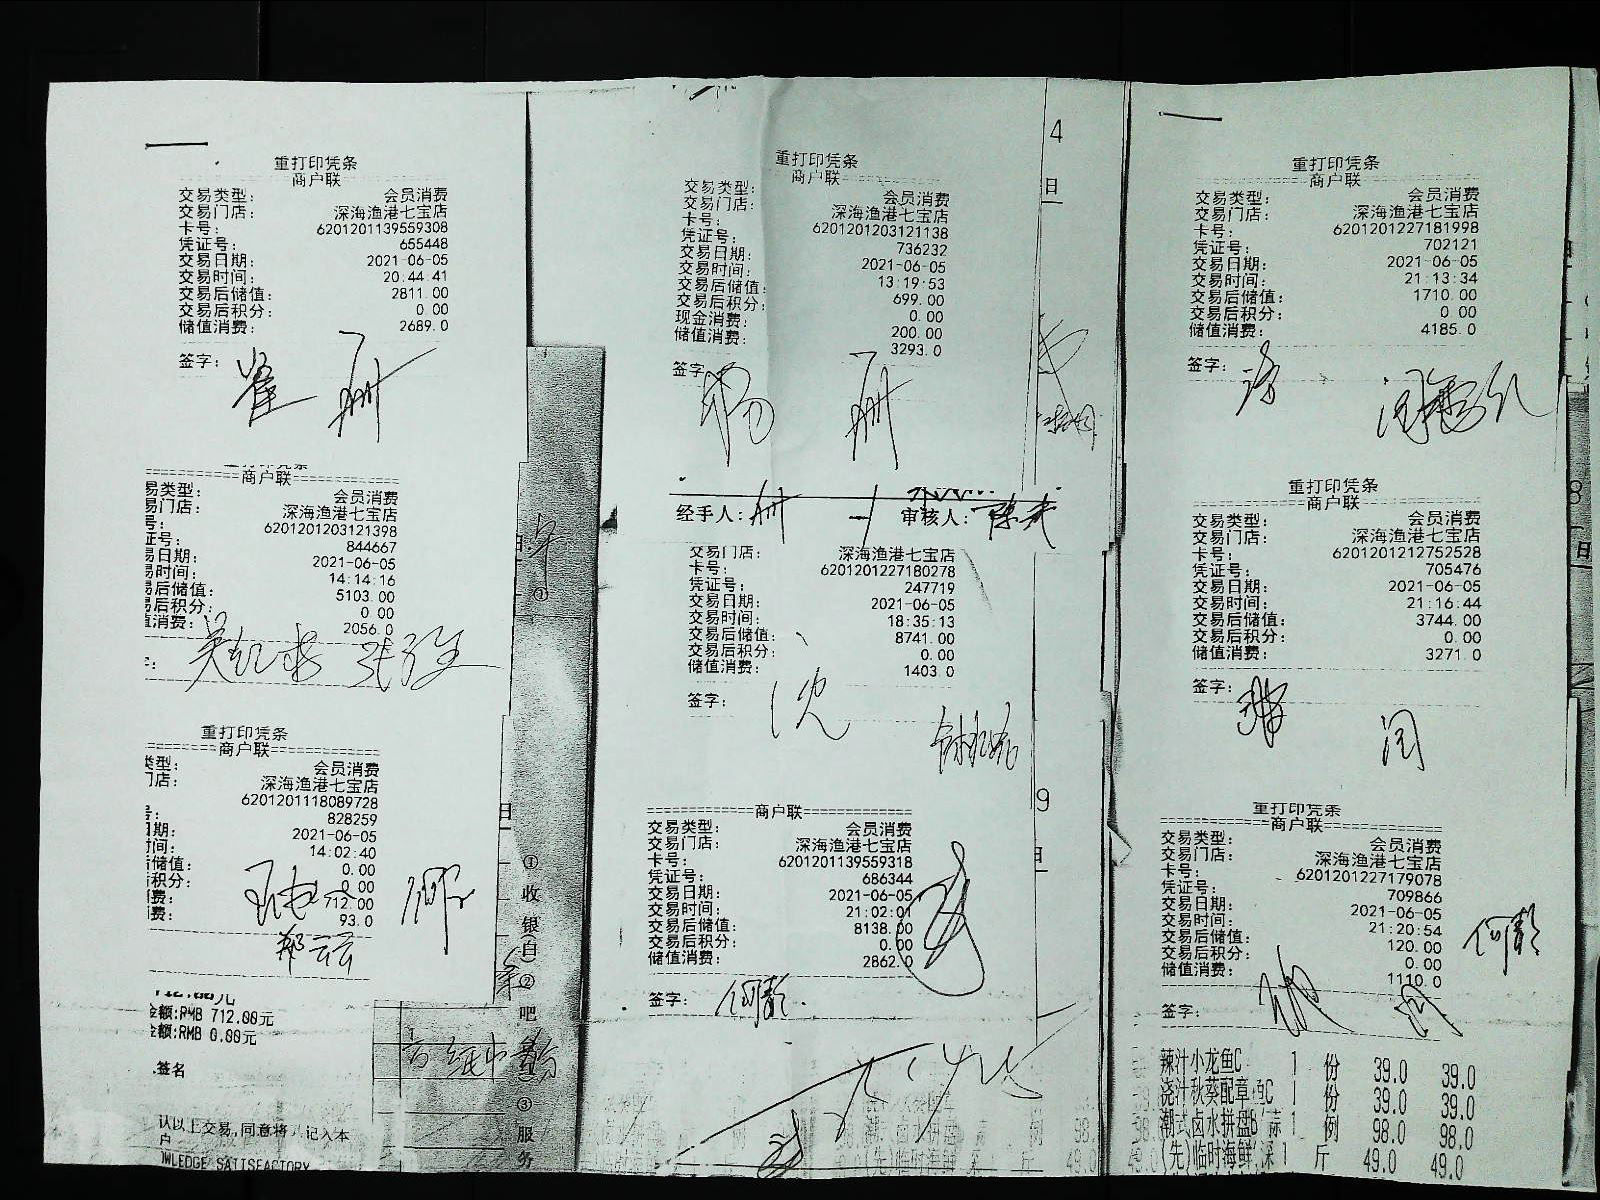 重打印凭条
商户联
交易类型: 会员消费
交易门店: 深海渔港七宝店
卡号: 6201201139559308
凭证号: 655448
交易日期: 2021-06-05
交易时间: 20:44:41
交易后储值: 2811.00
交易后积分: 0.00
储值消费: 2689.0
签字:
商户联
易类型: 会员消费
易门店: 深海渔港七宝店
号: 6201201203121398
证号: 844667
易日期: 2021-06-05
易时间: 14:14:16
易后储值: 5103.00
易后积分: 0.00
值消费: 2056.0
重打印凭条
商户联
类型: 会员消费
门店: 深海渔港七宝店
号: 6201201118089728
828259
日期: 2021-06-05
时间: 14:02:40
储值: 0.00
积分: 0.00
费: 712.00
费: 93.0
郑云云
金额:RMB 712.00元
金额:RMB 0.00元
签名
认以上交易,同意将 记入本
户
WLEDGE SATISFACTORY
①
收
银
白
②
吧
③
服
务
重打印凭条
商户联
交易类型: 会员消费
交易门店: 深海渔港七宝店
卡号: 6201201203121138
凭证号: 736232
交易日期: 2021-06-05
交易时间: 13:19:53
交易后储值: 699.00
交易后积分: 0.00
现金消费: 200.00
储值消费: 3293.0
签字
4
日
经手人: 审核人:
交易门店: 深海渔港七宝店
卡号: 6201201227180278
凭证号: 247719
交易日期: 2021-06-05
交易时间: 18:35:13
交易后储值: 8741.00
交易后积分: 0.00
储值消费: 1403.0
签字:
沈
商户联
交易类型: 会员消费
交易门店: 深海渔港七宝店
卡号: 6201201139559318
凭证号: 686344
交易日期: 2021-06-05
交易时间: 21:02:01
交易后储值: 8138.00
交易后积分: 0.00
储值消费: 2862.0
签字:
9
日
重打印凭条
商户联
交易类型: 会员消费
交易门店: 深海渔港七宝店
卡号: 6201201227181998
凭证号: 702121
交易日期: 2021-06-05
交易时间: 21:13:34
交易后储值: 1710.00
交易后积分: 0.00
储值消费: 4185.0
签字:
重打印凭条
商户联
交易类型: 会员消费
交易门店: 深海渔港七宝店
卡号: 6201201212752528
凭证号: 705476
交易日期: 2021-06-05
交易时间: 21:16:44
交易后储值: 3744.00
交易后积分: 0.00
储值消费: 3271.0
签字:
8
日
重打印凭条
商户联
交易类型: 会员消费
交易门店: 深海渔港七宝店
卡号: 6201201227179078
凭证号: 709866
交易日期: 2021-06-05
交易时间: 21:20:54
交易后储值: 120.00
交易后积分: 0.00
储值消费: 1110.0
签字:
辣汁小龙鱼C 1 份 39.0 39.0
浇汁秋葵配章鱼C 1 份 39.0 39.0
潮式卤水拼盘B 蒜 1 例 98.0 98.0
(先)临时海鲜 深 1 斤 49.0 49.0